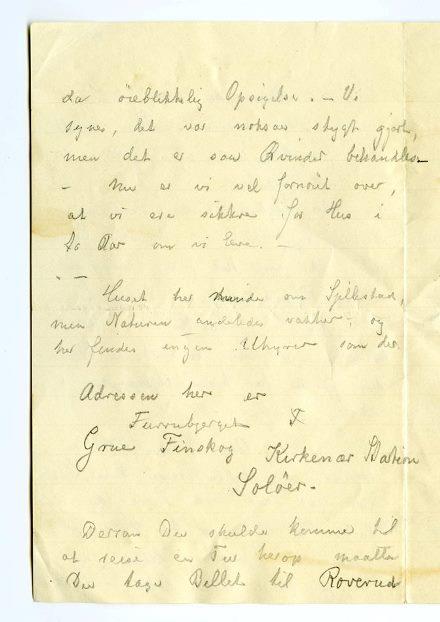 da öieblikkelig Opsigelse. – Vi
synes, det var noksaa stygt gjort,
men det er saa Kvinder behandles –
– Nu er vi vel fornöiet over,
at vi ere sikkre for Hus i
to Aar om vi leve. –
– Huset her minder om Spillestad,
men Naturen anderledes vakker, og
her findes ingen Uhyrer som der
Adressen her er
Furruberget
Grue Finskog Kirkenær Station
Solöer.
Dersom De skulde komme til
at reise en Tur herop maatte
De tage Billet til Roverud